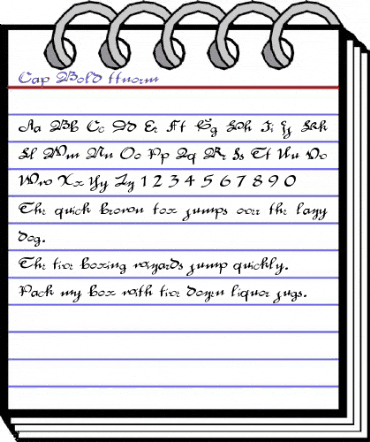 Cap Bold ffnorm
Aa Bb Cc Dd Ee Ff Gg Hh Ii Jj Kk
Ll Mm Nn Oo Pp Qq Rr Ss Tt Uu Vv
Ww Xx Yy Zz 1 2 3 4 5 6 7 8 9 0
The quick brown fox jumps over the lazy
dog.
The five boxing wizards jump quickly.
Pack my box with five dozen liquor jugs.